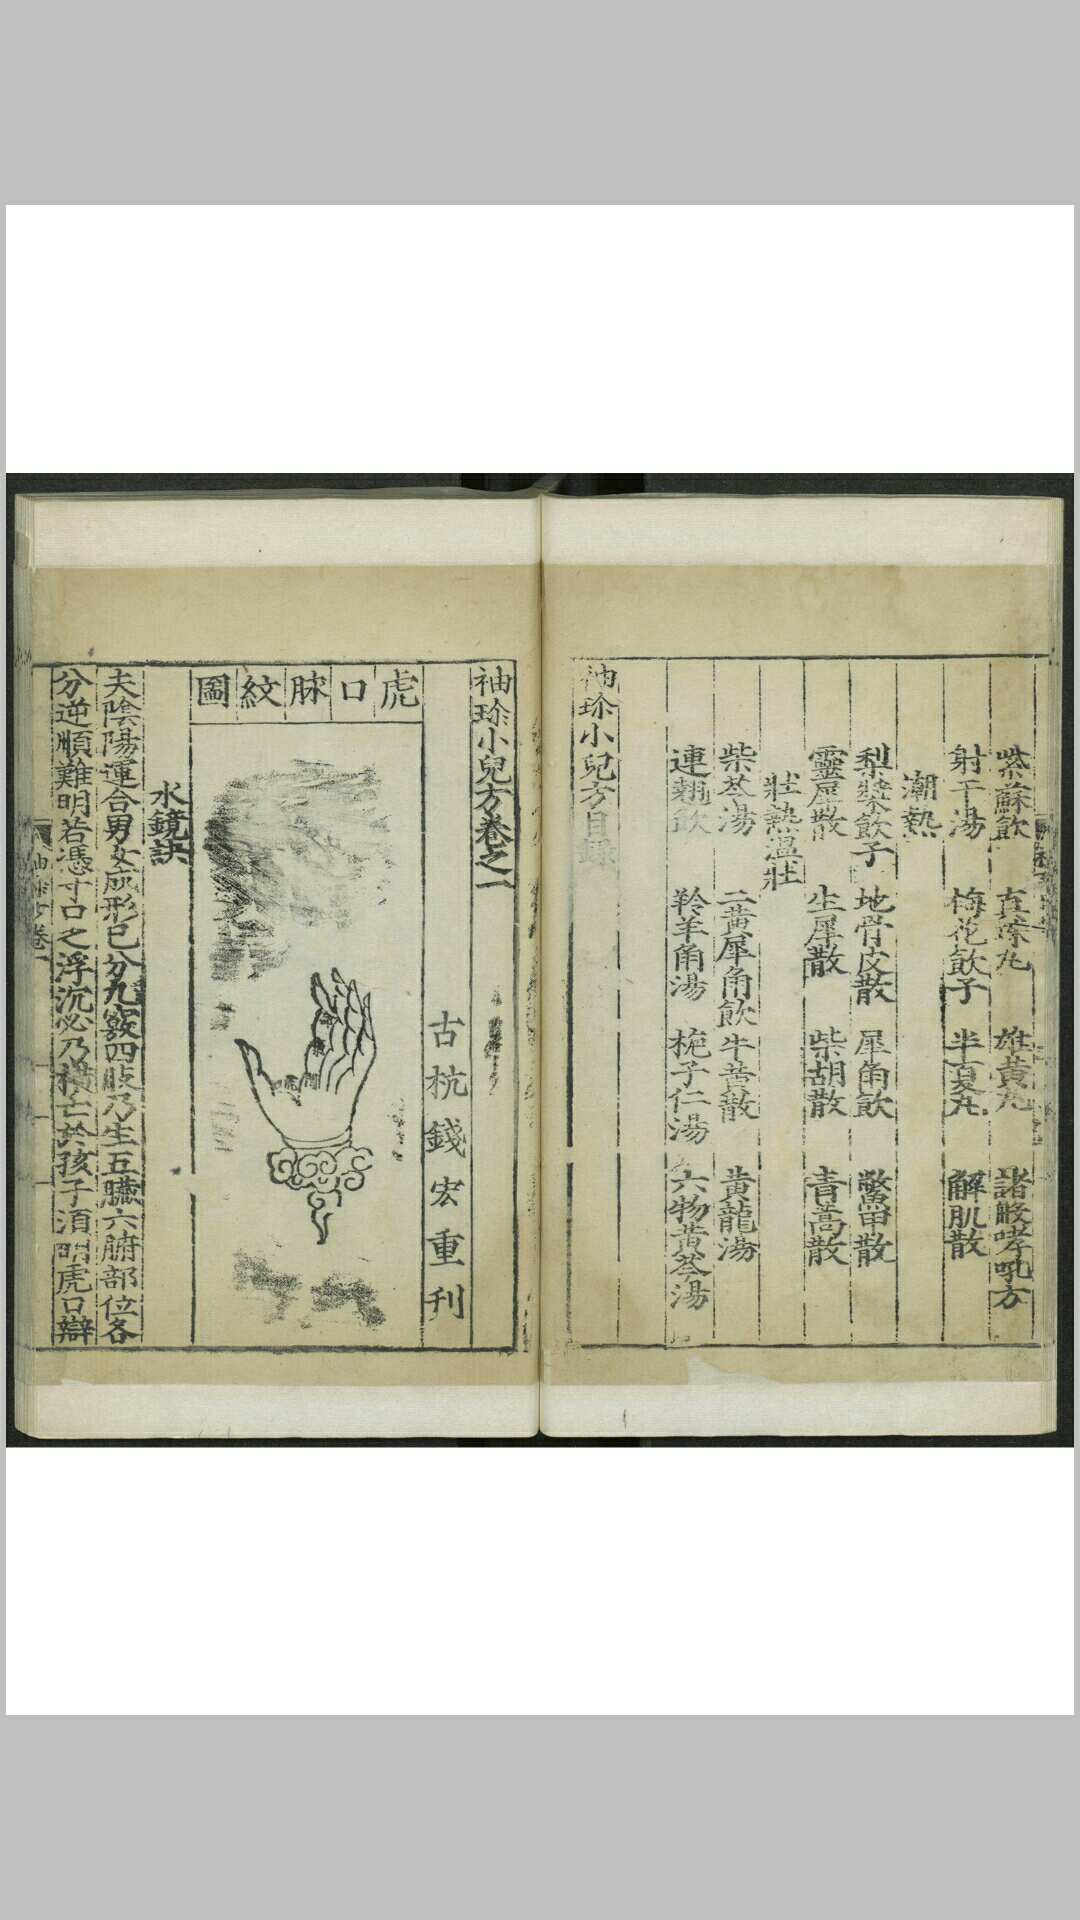 紫蘇飲 真珠丸 雄黃丸 諸般哮吼方
射干湯 梅花飲子 半夏丸 解肌散
潮熱
梨漿飲子 地骨皮散 犀角飲 鱉甲散
靈犀散 生犀散 柴胡散 青蒿散
壯熱温壯
柴苓湯 二黃犀角飲 牛黃散 黃龍湯
連翹飲 羚羊角湯 梔子仁湯 六物黃芩湯
袖珍小兒方目錄
袖珍小兒方卷之一
古杭錢宏重刊
虎口脉紋圖
水鏡訣
夫陰陽運合男女成形已分九竅四肢乃生五臟六腑部位各
分逆順難明若憑寸口之浮沉必乃橫亡於孩子湏明虎口辯